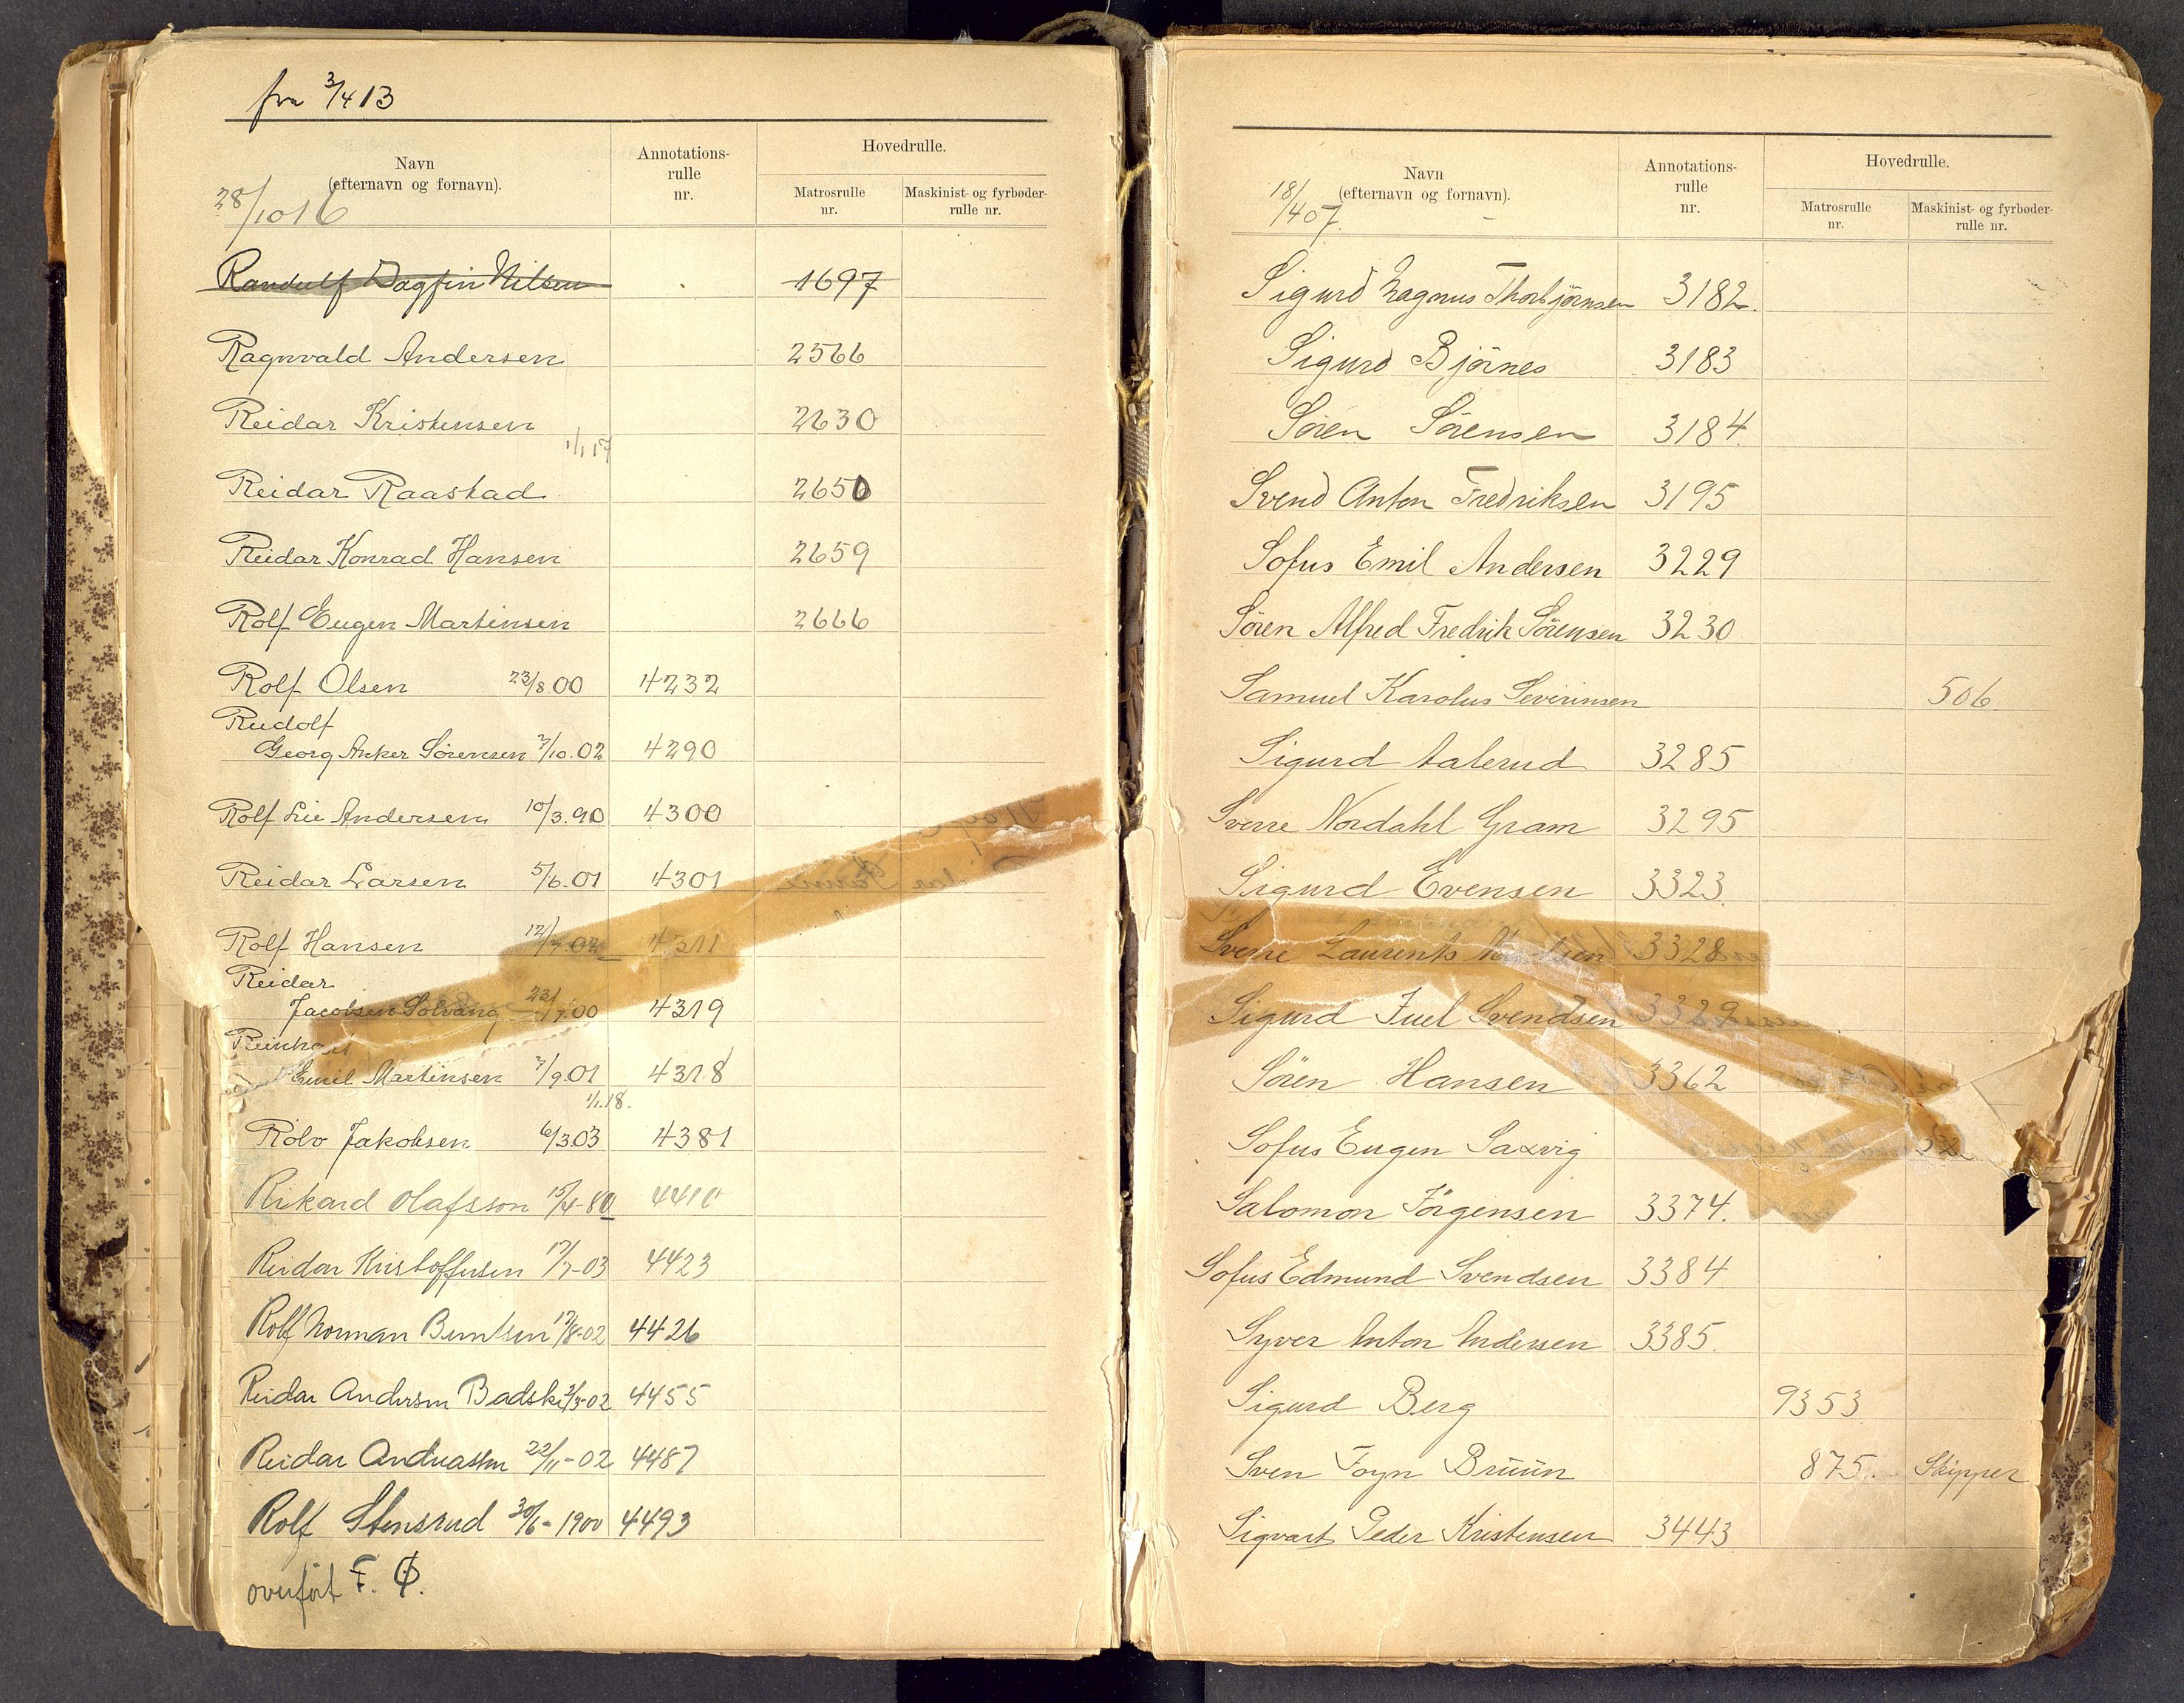 fra 3/4 13
Navn
(efternavn og fornavn).
Annotations-
rulle
nr.
Hovedrulle.
Matrosrulle
nr.
Maskinist- og fyrbøder-
rulle nr.
28/10 16
Randulf Dagfin Nilsen 1697
Ragnvald Andersen 2566
Reidar Kristensen 2630
1/1 17
Reidar Raastad 2650
Reidar Konrad Hansen 2659
Rolf Eugen Martinsen 2666
Rolf Olsen 23/8.00 4232
Rudolf
Georg Anker Sörensen 7/10.02 4290
Rolf Lie Andersen 10/3.90 4300
Reidar Larsen 5/6.01 4301
Rolf Hansen 12/7.02 4311
Reidar
Jacobsen Solvang 4319
Emil Martinsen 7/9.01 4318
1/1.18.
Rolv Jakobsen 6/3.03 4381
Rikard Olafsson 15/4-80
Reidar Kristoffersen 17/7-03 4423
Rolf Norman Berntsen 17/8-02 4426
Reidar Andersen 4455
Reidar Andreassen 22/11-02 4487
Rolf Stensrud 30/6-1900 4493
overfört F.
Navn
(efternavn og fornavn).
Annotations-
rulle
nr.
Hovedrulle.
Matrosrulle
nr.
Maskinist- og fyrbøder-
rulle nr.
18/4 07.
Sigurd Magnus Thorbjörnsen 3182.
Sigurd Björnes 3183
Sören Sörensen 3184
Svend Anton Fredriksen 3195
Sofus Emil Andersen 3229
Sören Alfred Fredrik Sörensen 3230
Samuel Karolus Severinsen 506
Sigurd Aalerud 3285
Sverre Nordahl Gram 3295
Sigurd Evensen 3323.
Sverre Laurents 3328
Sigurd Juel Svendsen 3329
Sören Hansen 3362
Sofus Eugen Saxvig
Salomon Jörgensen 3374.
Sofus Edmund Svendsen 3384
Syver Anton Andersen 3385.
Sigurd Berg 9353
Sven Foyn Bruun 875. Skipper
Sigvart Peder Kristensen 3443